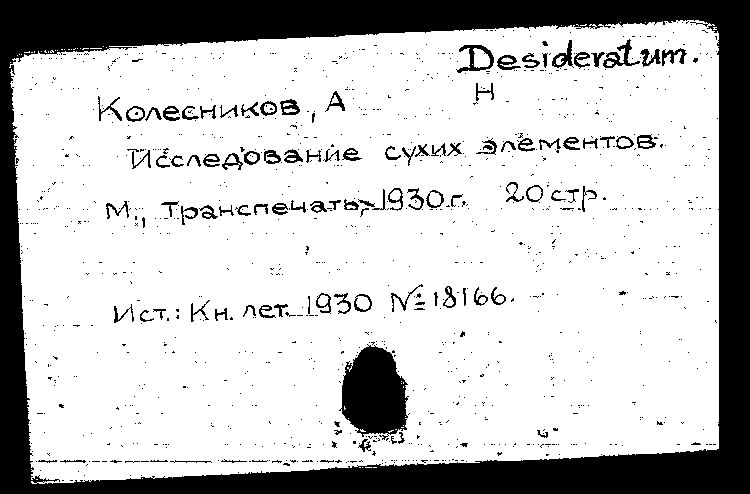 Desideratum.
Н
Колесников, А
Исследование сухих элементов.
М., Транспечать, 1930 г. 20 стр.
Ист.: Кн. лет. 1930 № 18166.